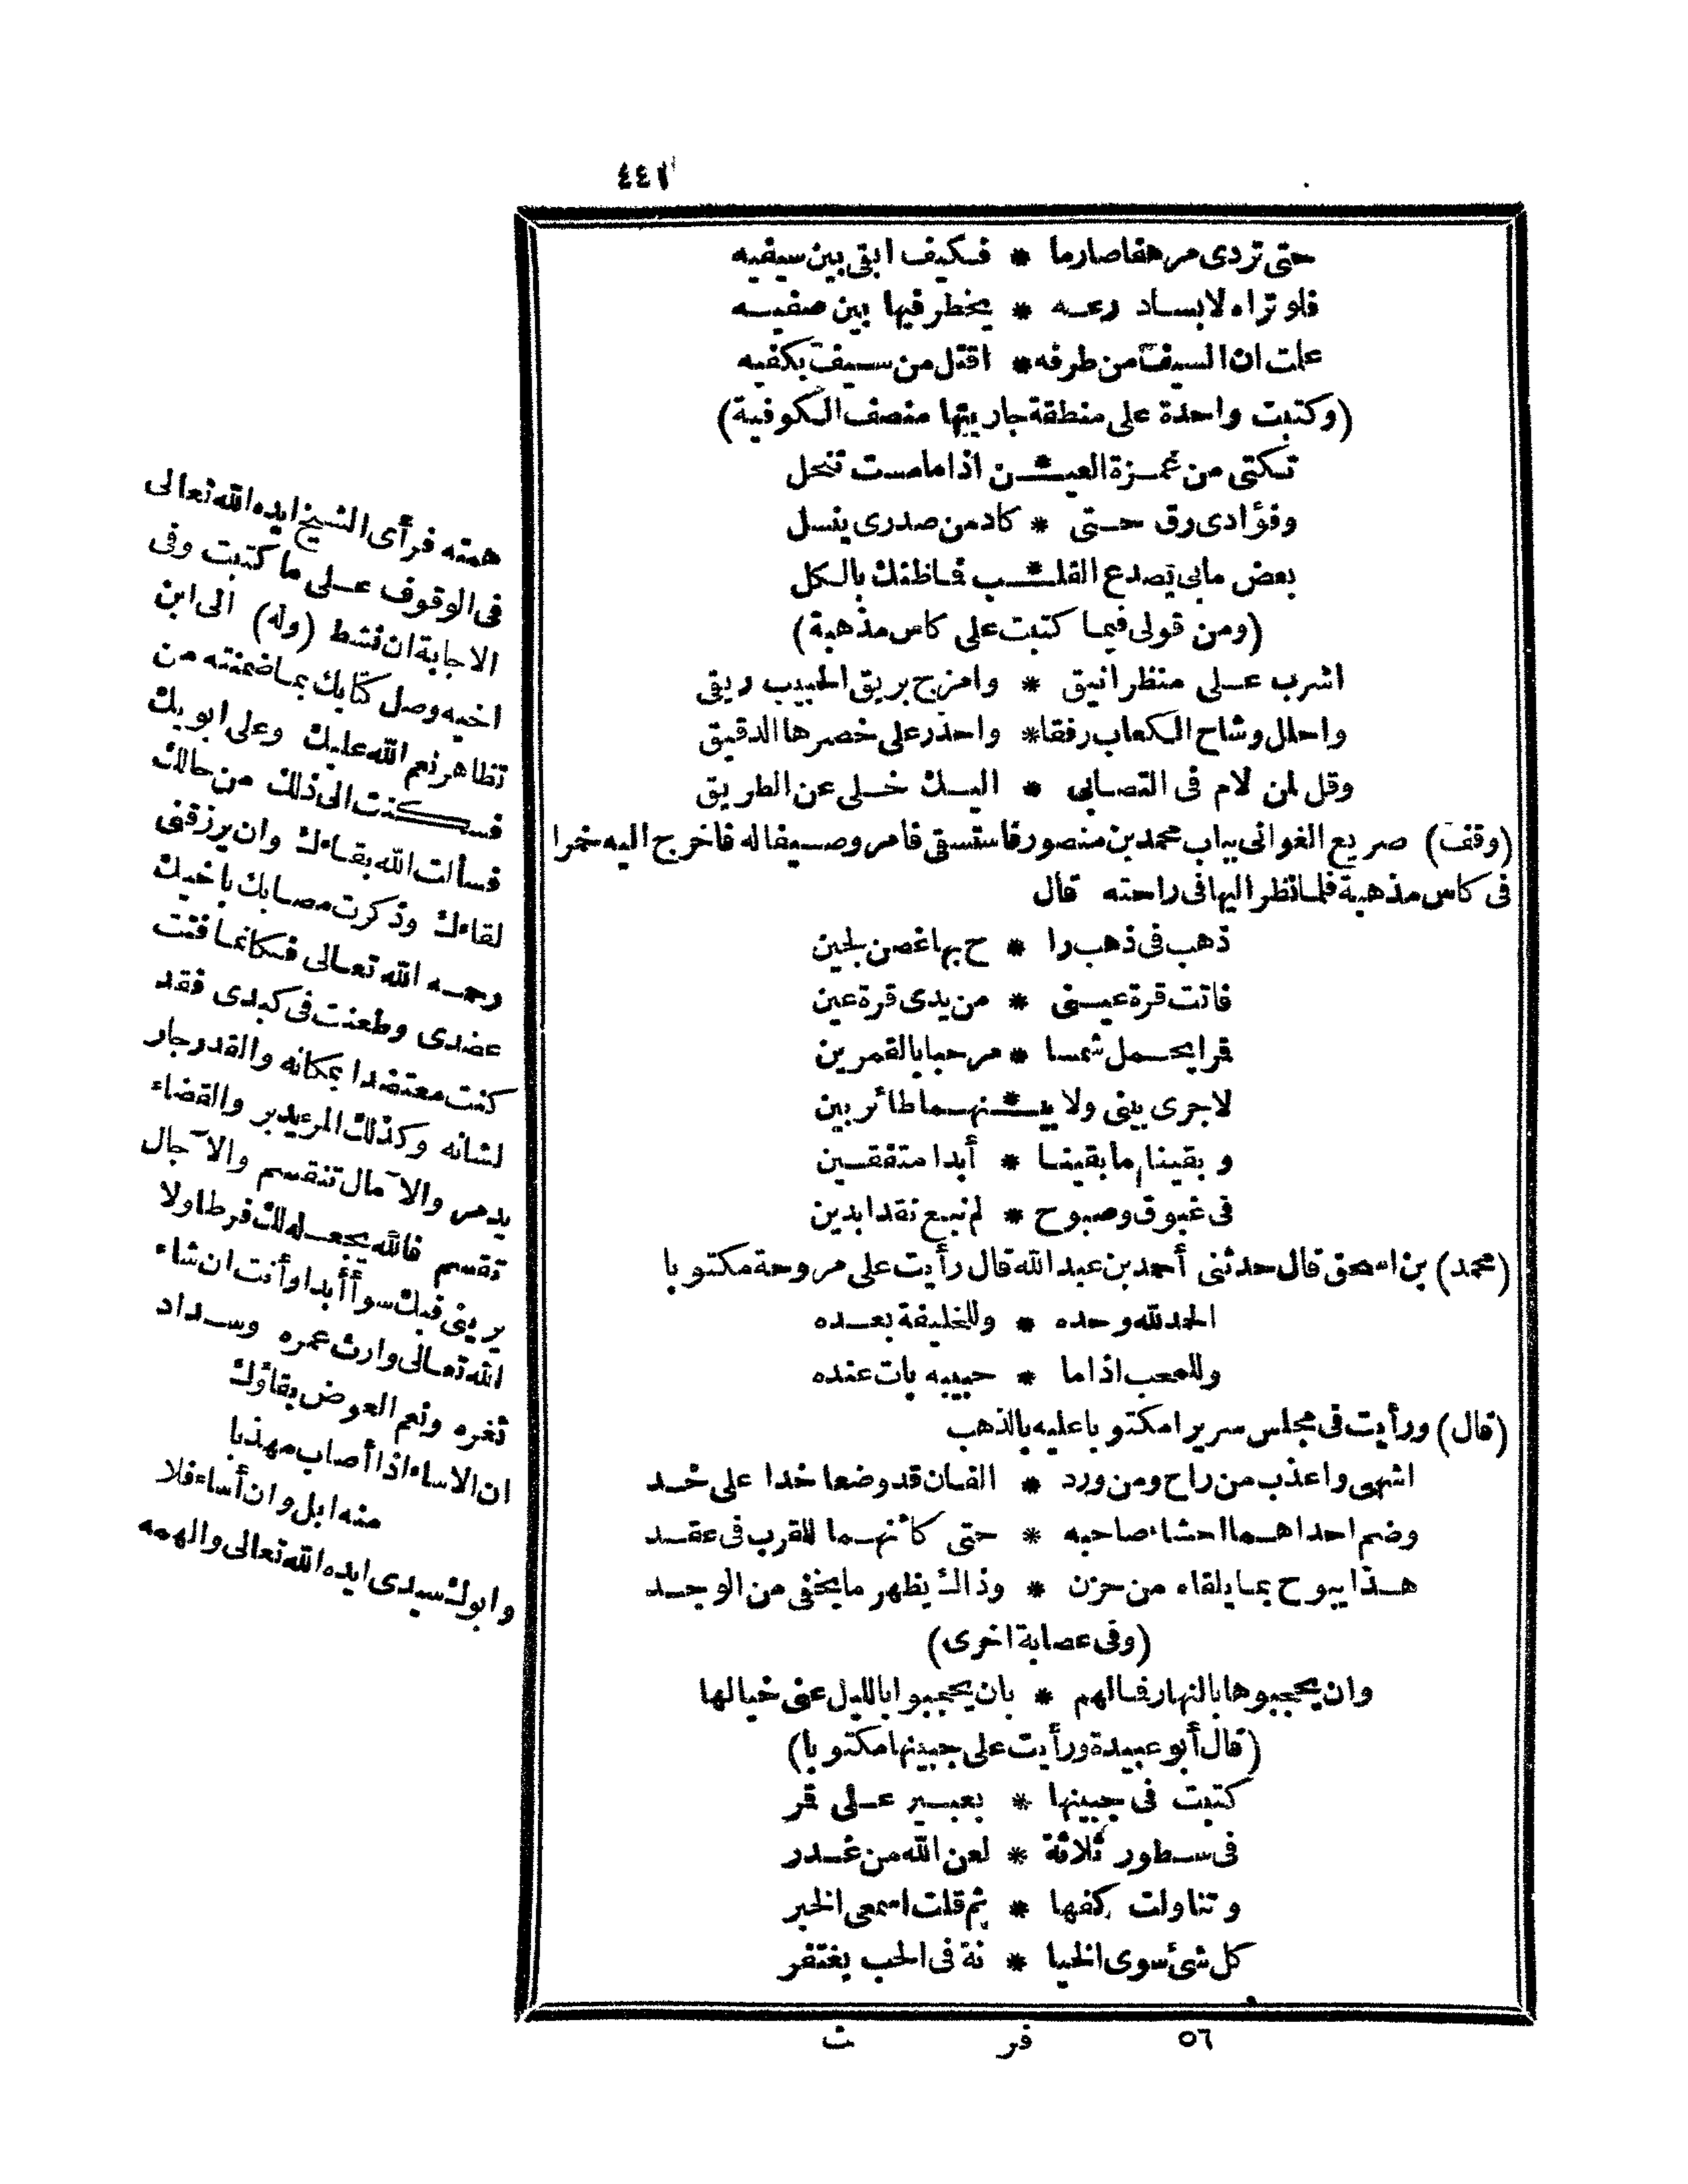 ٤٤١
حتى تردى مرهفا صارما * فكيف ابقى بين سيفيه
فلو تراه لابسا درعه * يخطر فيها بين صفيه
علمت ان السيف من طرفه * اقتل من سيف بكفيه
(وكتبت واحدة على منطقة جاريتها منصف الكوفية)
تكتى من غمزة العيـ * ـن اذا ما مست تنحل
وفؤادى رق حتى * كاد من صدرى ينسل
بعض ما بى تصدع القلـ * ـب فاظنك بالكل
(ومن قولى فيما كتبت على كاس مذهبة)
اشرب على منظر انيق * وامزج بريق الحبيب ريقى
واحلل وشاح الكعاب رفقا * واحذر على خصرها الدقيق
وقل لمن لام فى التصابى * اليك خلى عن الطريق
(وقف) صريع الغوانى بباب محمد بن منصور فاستسقى فامر وصيفا له فاخرج اليه خمرا
فى كاس مذهبة فلما نظر اليها فى راحته قال
ذهب فى ذهب را * ح بها غصن لجين
فاتت قرة عينى * من يدى قرة عين
قمرا يحمل شمسا * مرحبا بالقمرين
لاجرى بينى ولا بيـ * ـنهما طائر بين
وبقينا ما بقينا * أبدا متفقين
فى غبوق وصبوح * لم نبع نقدا بدين
(محمد) بن اسحق قال حدثنى أحمد بن عبد الله قال رأيت على مروحة مكتوبا
الحمد لله وحده * وللخليفة بعده
وللمحب اذا ما * حبيبه بات عنده
(قال) ورأيت فى مجلس سريرا مكتوبا عليه بالذهب
اشهى واعذب من راح ومن ورد * الفان قد وضعا خدا على خد
وضم احداهما احشاء صاحبه * حتى كأنهما للقرب فى عقد
هذا يبوح بما يلقاه من حزن * وذاك يظهر ما يخفى من الوجد
(وفى عصابة اخرى)
وان يحجبوها بالنهار فالهم * بان يحجبوا بالليل عنى خيالها
(قال أبو عبيدة ورأيت على جبينها مكتوبا)
كتبت فى جبينها * بعبير على قمر
فى سطور ثلاثة * لعن الله من غدر
وتناولت كفها * ثم قلت اسمعى الخبر
كل شئ سوى الخيا * نة فى الحب يغتفر
٥٦ فر ث
همته فرأى الشيخ ايده الله تعالى
فى الوقوف على ما كتبت وفى
الاجابة ان نشط (وله) الى ابن
اخيه وصل كتابك بما ضمنته من
تظاهر نعم الله عليك وعلى ابويك
فسكنت الى ذلك من حالك
فسألت الله بقاءك وان يرزقنى
لقاءك وذكرت مصابك باخيك
رحمه الله تعالى فكانما فتت
عضدى وطعنت فى كبدى فقد
كنت معتضدا بمكانه والقدر جار
لشانه وكذلك المرء يدبر والقضاء
يدمر والآمال تنقسم والآجال
تقسم فالله يجعله لك فرطا ولا
يرينى فيك سوأ أبدا وأنت ان شاء
الله تعالى وارث عمره وسداد
ثغره ونعم العوض بقاؤك
ان الاساء اذا أصاب مهذبا
منه ابل وان أساء فلا
وابوك سيدى ايده الله تعالى والهمه